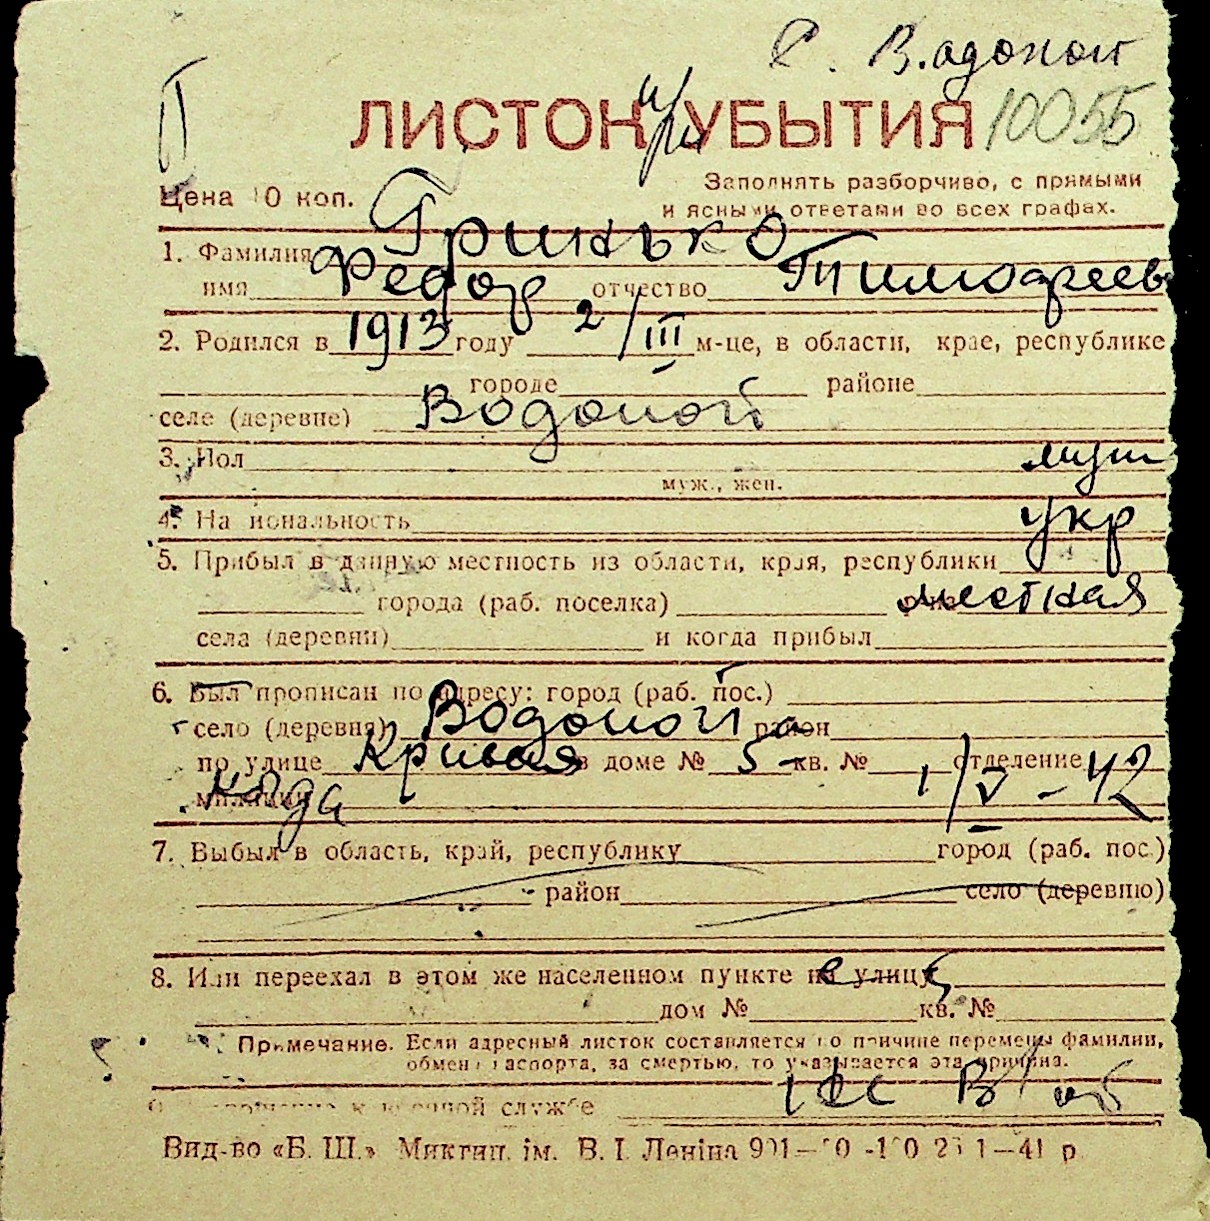 с. В.адопой
II
ЛИСТОК УБЫТИЯ 10055
Цена 10 коп.
Заполнять разборчиво, с прямыми
и ясными ответами во всех графах.
1. Фамилия Гринько
имя Федор отчество Тимофеев
2. Родился в 1913 году 2/III м-це, в области, крае, республике
городе районе
селе (деревне) Водопой
3. Пол муж
муж., жен.
4. Национальность укр
5. Прибыл в данную местность из области, края, республики
города (раб. поселка) местная
села (деревни) и когда прибыл
6. Был прописан по адресу: город (раб. пос.)
село (деревня) Водопой район
по улице Кривая в доме № 5 кв. № отделение
милиции 1/V-42
7. Выбыл в область, край, республику город (раб. пос.)
район село (деревню)
8. Или переехал в этом же населенном пункте на улицу
дом № кв. №
Примечание. Если адресный листок составляется по причине перемены фамилии,
обмена паспорта, за смертью, то указывается эта причина.
Отношение к военной службе в/об
Вид-во «Б. Ш.» Миктип. ім. В. І. Леніна